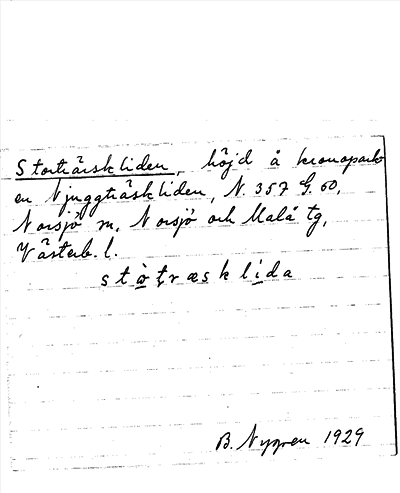 Storträskliden, höjd å kronopark-
en Njuggträskliden, N. 357 G. 60,
Norsjö m, Norsjö och Malå tg,
Västerb. l.
stòtræsklida
B. Nygren 1929